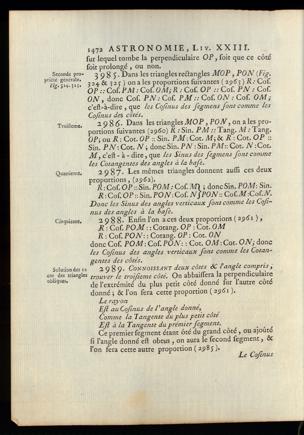 1472 ASTRONOMIE, LIV. XXIII.
sur lequel tombe la perpendiculaire OP, soit que ce côté
soit prolongé, ou non.
Seconde propriété générale.
Fig. 324. 325.
3985. Dans les triangles rectangles MOP, PON (Fig.
324 & 325) on a les proportions suivantes (2963) R : Cos.
OP :: Cos. PM : Cos. OM; R : Cos. OP :: Cos. PN : Cos.
ON, donc Cos. PN : Cos. PM :: Cos. ON : Cos. OM;
c'est-à-dire, que les Cosinus des segmens sont comme les
Cosinus des côtés.
Troisieme.
2986. Dans les triangles MOP, PON, on a les pro-
portions suivantes (2960) R : Sin. PM :: Tang. M : Tang.
OP; ou R : Cot. OP :: Sin. PM : Cot. M; & R : Cot. OP ::
Sin. PN : Cot. N; donc Sin. PN : Sin. PM :: Cot. N : Cot.
M, c'est-à-dire, que les Sinus des segmens sont comme
les Cotangentes des angles à la base.
Quatrieme.
2987. Les mêmes triangles donnent aussi ces deux
proportions, (2962).
R : Cos. OP :: Sin. POM : Cos. M; donc Sin. POM : Sin.
R : Cos. OP :: Sin. PON : Cos. N PON :: Cos. M : Cos. N.
Donc les Sinus des angles verticaux sont comme les Cosi-
nus des angles à la base.
Cinquieme.
2988. Enfin l'on a ces deux proportions (2961),
R : Cos. POM :: Cotang. OP : Cot. OM
R : Cos. PON :: Cotang. OP : Cot. ON
donc Cos. POM : Cos. PON :: Cot. OM : Cot. ON; donc
les Cosinus des angles verticaux sont comme les Cotan-
gentes des côtés.
Solution des cas des triangles
obliques.
2989. CONNOISSANT deux côtés & l'angle compris,
trouver le troisieme côté. On abbaissera la perpendiculaire
de l'extrémité du plus petit côté donné sur l'autre côté
donné; & l'on fera cette proportion (2961).
Le rayon
Est au Cosinus de l'angle donné,
Comme la Tangente du plus petit côté
Est à la Tangente du premier segment.
Ce premier segment étant ôté du grand côté, ou ajouté
si l'angle donné est obtus, on aura le second segment, &
l'on fera cette autre proportion (2985).
Le Cosinus